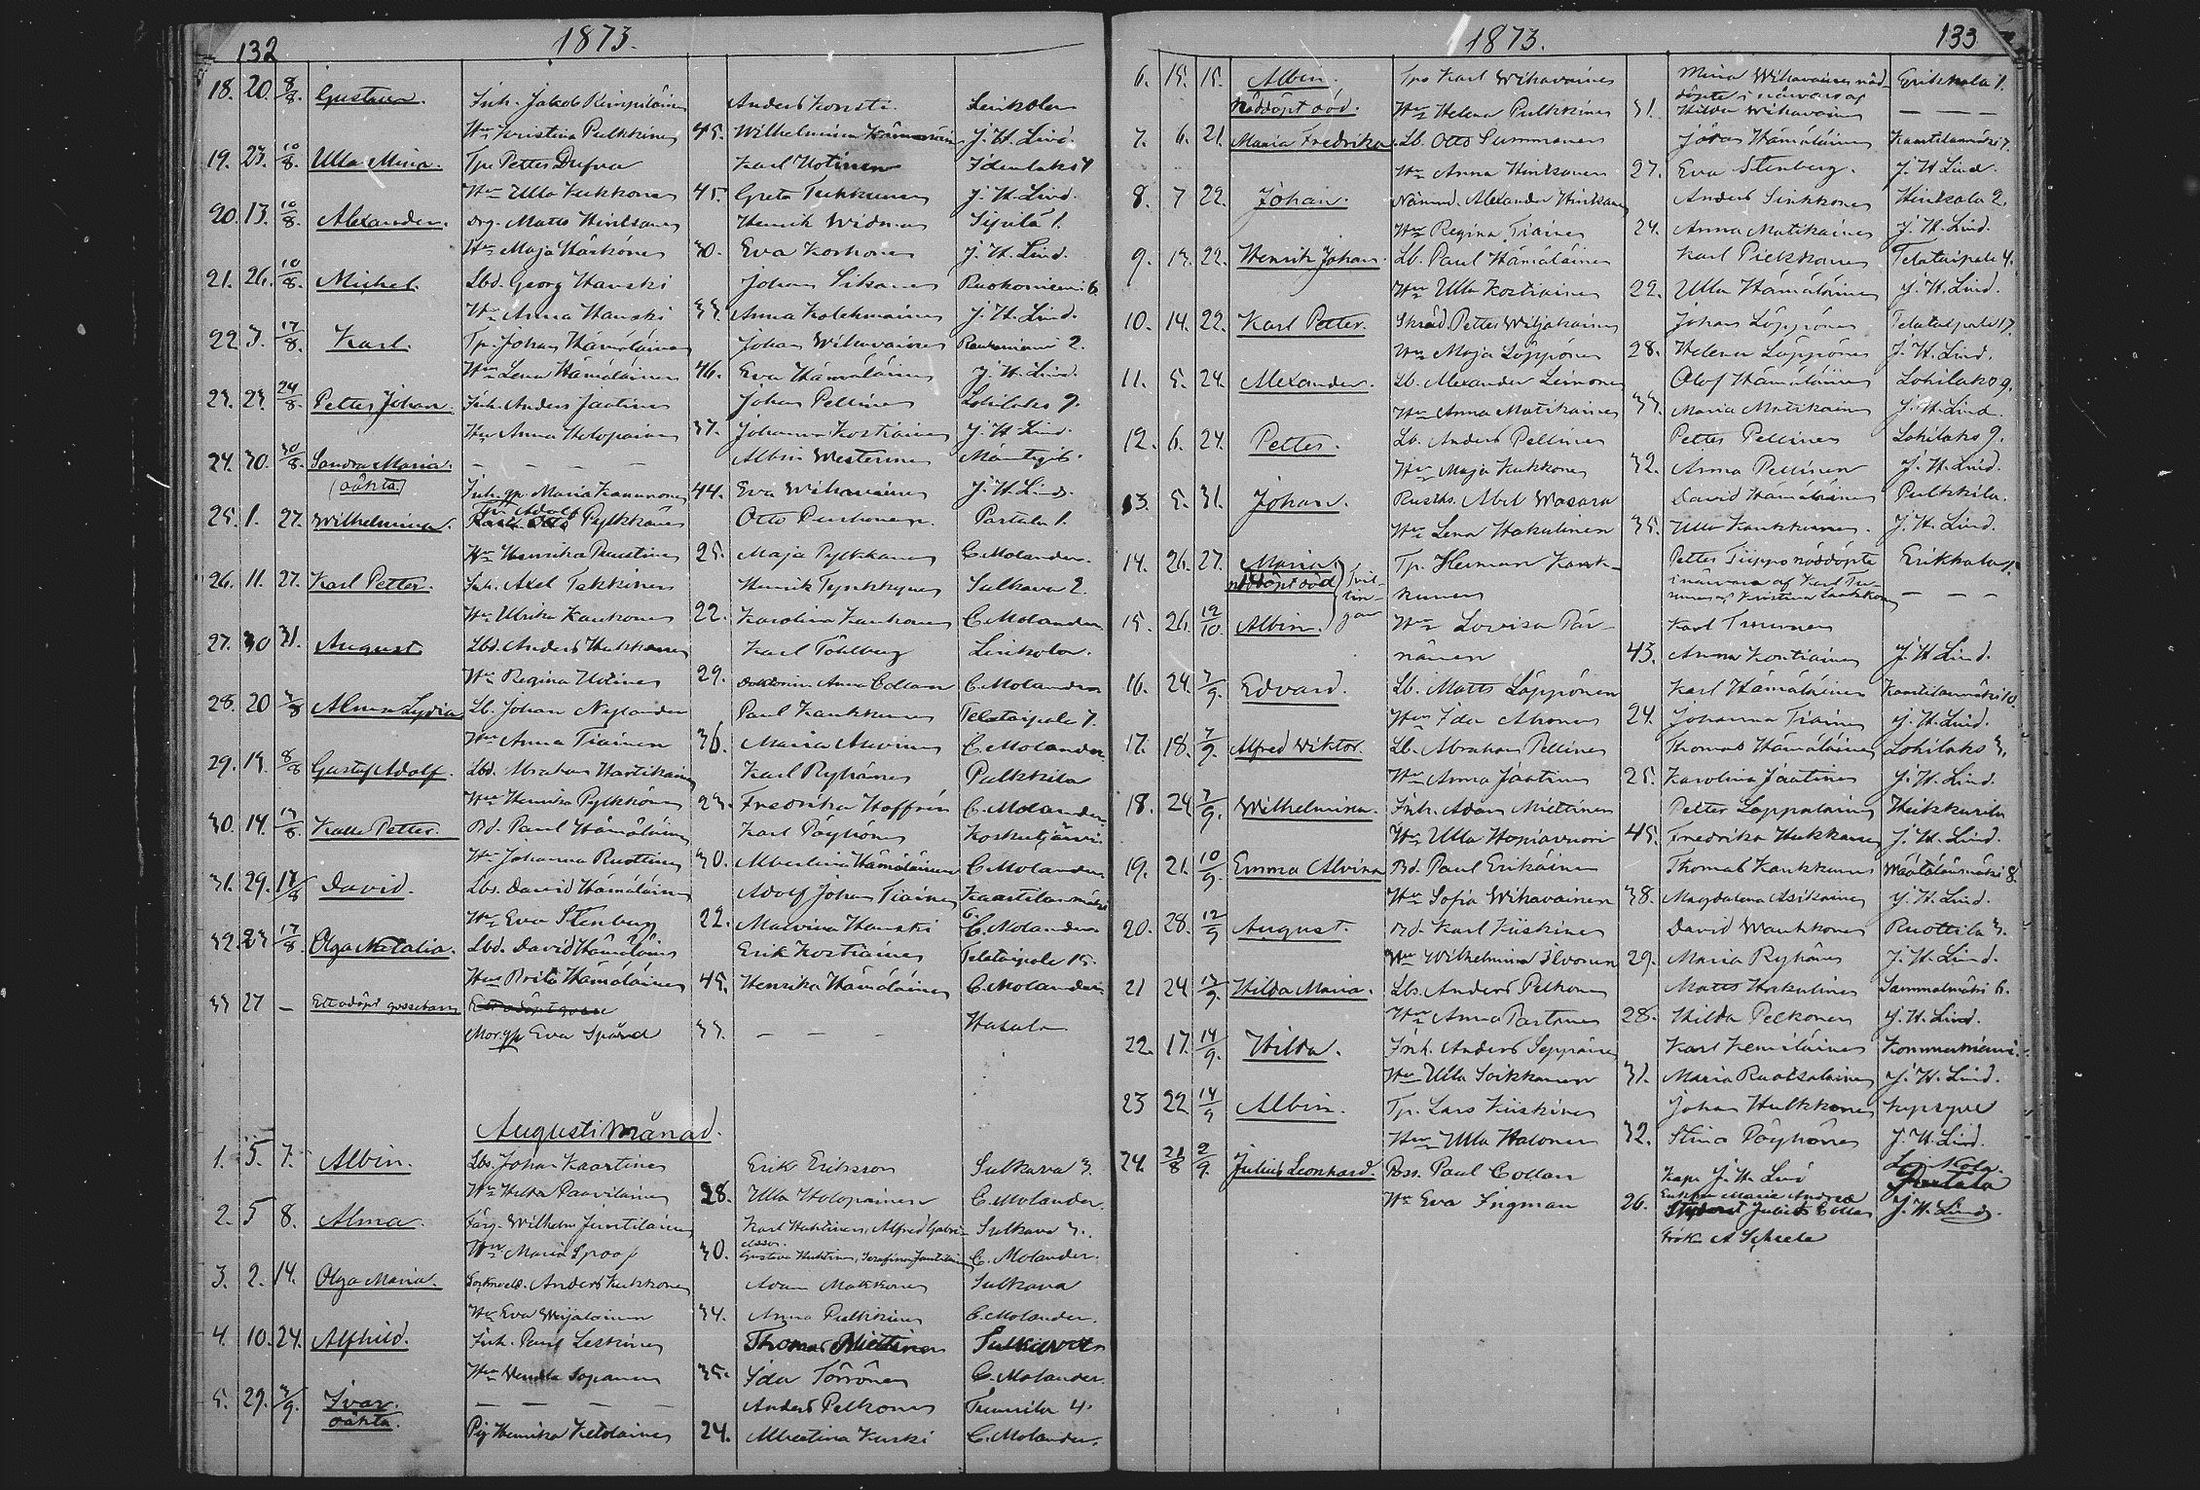 132
1873.
18. 20. 8/8. Gustava. Inh. Jakob Kimpiläinen Anders Konsti Linkola
Hu Kristina Pulkkinen 45. Wilhelmina Hämäläinen J. H. Lind.
19. 23. 10/8. Ulla Mina. Tpr. Petter Dufva Karl Hotinen Idenlaks 4
Hu Ulla Kukkonen 45. Greta Tukkunen J. H. Lind.
20. 13. 10/8. Alexander. Drg. Matts Hintsanen Henrik Widman Sipilä 1.
Hu Maja Härkönen 30. Eva Korhonen J. H. Lind.
21. 26. 10/8. Michel. Lbd. Georg Hanski Johan Sikanen Ruokoniemi 6.
Hu Anna Hanski 33. Anna Kolehmainen J. H. Lind.
22. 3. 17/8. Karl. Tp. Johan Hämäläinen Johan Wihavainen Rauhaniemi 2.
Hu Lena Hämäläinen 46. Eva Hämäläinen J. H. Lind.
23. 23. 24/8. Petter Johan. Inh. Anders Jaatinen Johan Pellinen Lohilaks 9.
Hu Anna Holopainen 37. Johanna Kostiainen J. H. Lind.
24. 30. 30/8. Sandra Maria. — — — — Albin Westerinen Mäntyä 6.
(oäkta.) Inh. gp. Maria Kanunonen 44. Eva Wihavainen J. H. Lind.
25. 1. 27. Wilhelmina. Adolf Pylkkänen Otto Purhonen Partala 1.
Hu Henrika Puustinen 25. Maja Pylkkänen C. Molander.
26. 11. 27. Karl Petter. Inh. Axel Takkinen Henrik Tynkkynen Sulkava 2.
Hu Ulrika Kauhonen 22. Karolina Kauhonen C. Molander.
27. 30 31. August Lbd. Anders Hukkanen Karl Töhlberg Linkola.
Hu Regina Hotinen 29. Anna Collan C. Molander
28. 20 3/8 Alma Lydia Lb. Johan Nylander Paul Kaukkunen Telataipale 7.
Hu Anna Tiainen 36. Maria Auvinen C. Molander
29. 19. 8/8 Gustaf Adolf. Lbd. Abraham Hartikainen Karl Ryhänen Pulkkila
Hu Henrika Pylkkönen 23. Fredrika Hoffrén C. Molander.
30. 14. 17/8. Kalle Petter. Bd. Paul Hämäläinen Karl Pöyhönen Koskutjärvi
Hu Johanna Ruottinen 30. Albertina Hämäläinen C. Molander.
31. 29. 17/8 David. Lbs. David Hämäläinen Adolf Johan Tiainen Kaartilanmäki
6.
Hu Eva Stenberg 22. Malvina Hanski C. Molander
32. 23 17/8. Olga Natalia. Lbd. David Hämäläinen Erik Kostiainen Telataipale 15.
Hu Brita Hämäläinen 45. Henrika Hämäläinen C. Molander.
33 27 — Ett odöpt gossebarn
Mor. gp Eva Spåra 33. — — Hasula
Augusti Månad.
1. 5. 7. Albin. Lbs. Johan Kaartinen Erik Eriksson Sulkava 3.
Hu Hilda Paavilainen 28. Ulla Holopainen C. Molander.
2. 5 8. Alma. Färg. Wilhelm Juntilainen Karl Huhtinen, Alfred Gabri- Sulkava 3.
elsson.
Hu Maria Sproof 30. Gustava Huhtinen, Serafina Juntilainen C. Molander.
3. 2. 14. Olga Maria. Anders Kukkonen Adam Makkonen Sulkava
Hu Eva Wiljalainen 34. Anna Pulkkinen C. Molander.
4. 10. 24. Alfhild. Inh. Paul Leskinen Thomas Miettinen Sulkava
Hu Vendla Sopanen 35. Ida Törrönen C. Molander.
5. 29. 3/9. Ivar. — — — — Anders Pelkonen Tunnila 4.
oäkta. Pig Henrika Ketolainen 24. Albertina Kurki C. Molander.
1873.
133
6. 15. 15. Albin. Tpr Karl Wihavainen Mina Wihavainen nöd- Erikkala 1.
döpte i närvaro af
Nöddöpt död. Hu Helena Pulkkinen 31. Hilda Wihavainen — — —
7. 6. 21. Maria Fredrika. Lb. Otto Summanen Jöran Hämäläinen Kaartilanmäki 7.
Hu Anna Hintsanen 27. Eva Stenberg. J. H. Lind.
8. 7 22. Johan. Nämnd. Alexander Hintsanen Anders Sinkkonen Hintsala 2.
Hu Regina Tiainen 24. Anna Matikainen J. H. Lind.
9. 13. 22. Henrik Johan. Lb. Paul Hämäläinen Karl Piekkanen Telataipale 4.
Hu Ulla Kostiainen 22. Ulla Hämäläinen J. H. Lind.
10. 14. 22. Karl Petter. Skräd. Petter Wiljakainen Johan Löppönen Telataipale 17.
Hu Maja Löppönen 28. Helena Löppönen J. H. Lind.
11. 5. 24. Alexander. Lb. Alexander Leinonen Olof Hämäläinen Lohilaks 9.
Hu Anna Matikainen 33. Maria Matikainen J. H. Lind.
12. 6. 24. Petter. Lb. Anders Pellinen Petter Pellinen Lohilaks 9.
Hu Maja Kukkonen 32. Anna Pellinen J. H. Lind.
13. 5. 31. Johan. Rusth. Abel Wasara David Hämäläinen Pulkkila.
Hu Lena Hakulinen 35. Ulla Kaukkunen. J. H. Lind.
14. 26. 27. Maria Tp. Herman Kauk- Petter Tiippo nöddöpte Erikkala 1.
nöddöpt död Tvil- kunen i närvaro af Karl Tu-
lin- runen & Kristina — — —
15. 26. 12/10. Albin. gar Hu Lovisa Pär- Karl Turunen
nänen 43. Anna Kontiainen J. H. Lind.
16. 24. 7/9. Edvard. Lb. Matts Löppönen Karl Hämäläinen Kaartilanmäki 10.
Hu Ida Ahonen 24. Johanna Tiainen J. H. Lind.
17. 18. 7/9. Alfred Wiktor. Lb. Abraham Pellinen Thomas Hämäläinen Lohilaks 3.
Hu Anna Jaatinen 25. Karolina Jaatinen J. H. Lind.
18. 24 7/9. Wilhelmina. Inh. Adam Miettinen Petter Lappalainen Heikkurila
Hu Ulla Hopiavuori 45. Fredrika Hukkanen J. H. Lind.
19. 21. 10/9. Emma Alvina Bd. Paul Erikäinen Thomas Kaukkunen Wäätälänmäki 8.
Hu Sofia Wihavainen 38. Magdalena Asikainen J. H. Lind.
20. 28. 12/9 August. Bd. Karl Kiiskinen David Waukkonen Ruottila 3.
Hu Wilhelmina Ilvonen 29. Maria Ryhänen J. H. Lind.
21 24 13/9. Hilda Maria. Lbs. Anders Pelkonen Matts Hakulinen Sammalmäki 6.
Hu Anna Partanen 28. Hilda Pelkonen J. H. Lind.
22. 17. 14/9. Hilda. Inh. Anders Seppänen Karl Kemiläinen Kommerniemi.
Hu Ulla Soikkanen 31. Maria Ruotsalainen J. H. Lind.
23 22 14/9 Albin. Tp. Lars Kiiskinen Johan Hulkkonen Kyrsyä
Hu Ulla Halonen 32. Stina Pöyhönen J. H. Lind.
24. 21/8 2/9. Julius Leonhard. Poss. Paul Collan Kapl. J. H. Lind Partala
Hu Eva Ingman 26. Enkfru Maria Andrea J. H. Lind.
Student Julius Collan
Frök. A Schéele